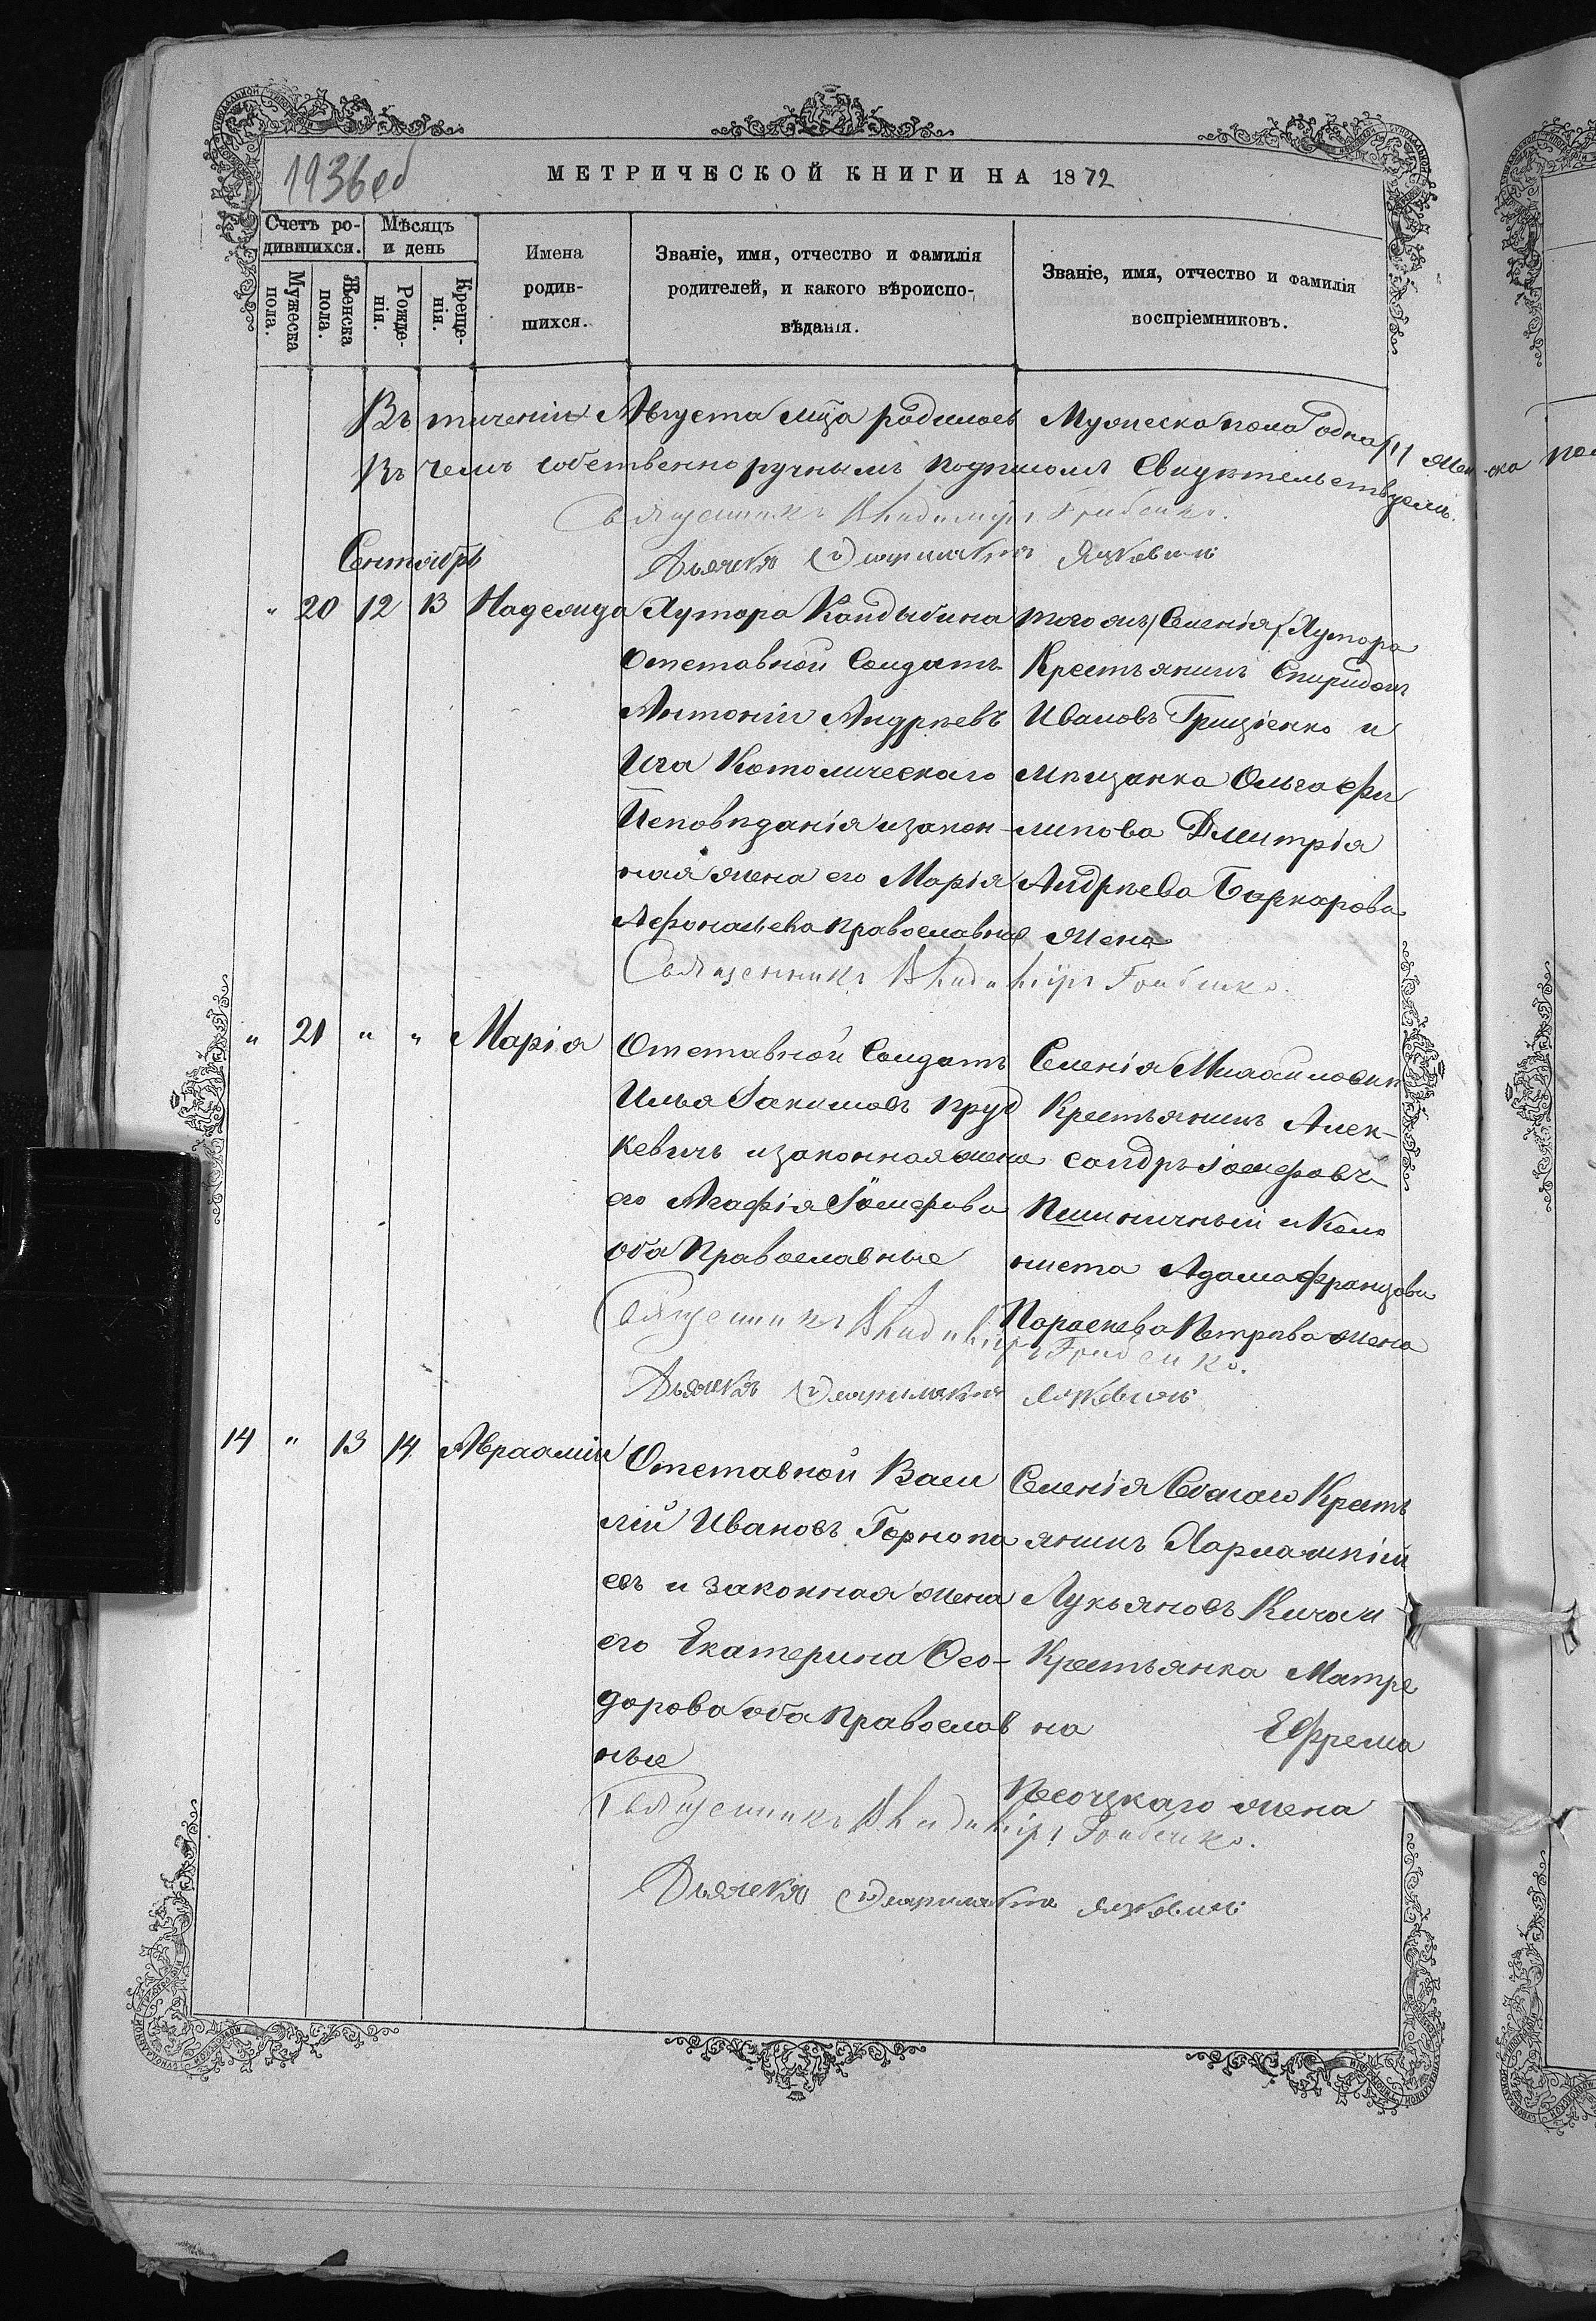 1936об
МЕТРИЧЕСКОЙ КНИГИ НА 1872
Счетъ родившихся.
Мѣсяцъ и день
Мужеска пола.
Женска пола.
Рожденія.
Крещенія.
Имена родившихся.
Званіе, имя, отчество и фамилія родителей, и какого вѣроисповѣданія.
Званіе, имя, отчество и фамилія воспріемниковъ.
Въ теченіи Августа мца родилось Мужеска пола
Въ чемъ собственноручнымъ подписомъ Свидѣтельствуемъ.
Священникъ Владиміръ
Сентябрь
Дьячекъ
" 20 12 13 Надежда
Хутора Кандыбина
Отставной Солдатъ
Антоній Андреевъ
Католическаго
Исповѣданія и закон-
ная жена его Марія
Афонасьева православная
того жъ Селенія/Хутора
Крестьянинъ Спиридонъ
Ивановъ Грищенко и
мѣщанка Ольга Фи
липова Дмитрія
Андреева жена
Священникъ Владиміръ
" 21 " " Марія
Отставной Солдатъ
Илья пруд
кевичь и законная жена
его Агафія Іосифова
оба Православные
Селенія
Крестьянинъ Алек-
сандръ Іосифовъ
Пшиничный и Коло
ниста Адама Францова
Параскева Петрова жена
Священникъ Владиміръ
Дьячекъ
14 " 13 14 Авраамій
Отставной Васи
лій Ивановъ
евъ и законная жена
его Екатерина Ѳео-
дорова оба Православ
ные
Селенія Крестъ
янинъ Харлампій
Лукьяновъ
Крестьянка Матре
на Ефрема
Песоцкаго жена
Священникъ Владиміръ
Дьячекъ